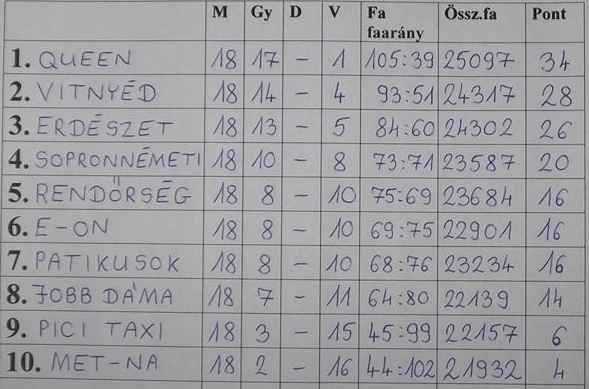 M Gy D V Fa faarány Össz.fa Pont
1. QUEEN 18 17 - 1 105:39 25097 34
2. VITNYÉD 18 14 - 4 93:51 24317 28
3. ERDÉSZET 18 13 - 5 84:60 24302 26
4. SOPRONNÉMETI 18 10 - 8 73:71 23587 20
5. RENDŐRSÉG 18 8 - 10 75:69 23684 16
6. E-ON 18 8 - 10 69:75 22901 16
7. PATIKUSOK 18 8 - 10 68:76 23234 16
8. JOBB DÁMA 18 7 - 11 64:80 22139 14
9. PICI TAXI 18 3 - 15 45:99 22157 6
10. MET-NA 18 2 - 16 44:102 21932 4